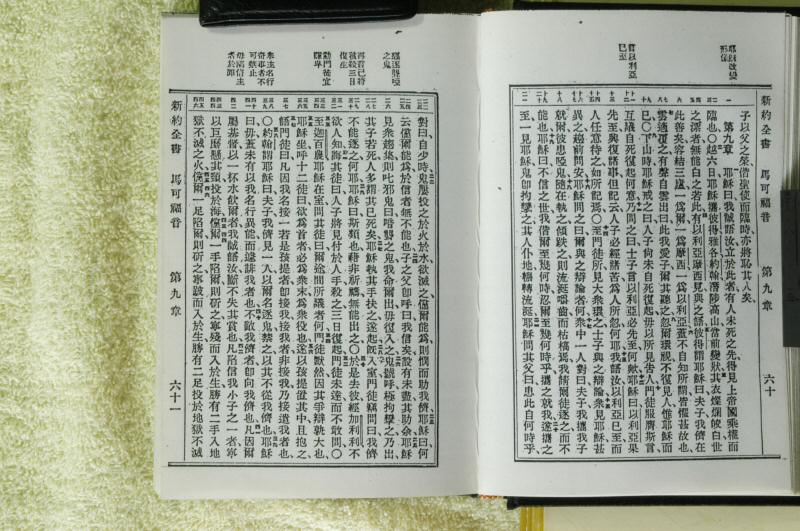 新約全書 馬可福音 第九章 六十
耶穌改變形像
言以利亞已至
子以父之榮偕聖使而臨時亦將恥其人矣
第九章 耶穌曰我誠語汝立於此者有人未死之先得見上帝國乘權而
臨也〇越六日耶穌攜彼得雅各約翰潛陟高山當前變狀其衣燦爛皎白世
之漂者無能白之若此有以利亞摩西見與之語彼得謂耶穌曰夫子我儕在
此善矣容結三廬一爲爾一爲摩西一爲以利亞蓋不自知所謂皆懼甚故也
雲適覆之有聲自雲出曰此我愛子爾其聽之忽爾環視不復見人惟耶穌而
已〇下山時耶穌戒之曰人子尙未自死復起毋以所見告人門徒服膺斯言
互議自死復起何意乃問之曰士子言以利亞必先至何歟耶穌曰以利亞果
先至興復諸事但記云人子必經諸苦爲人所忽何耶我語汝以利亞已至而
人任意待之如所記焉〇至門徒所見大衆環之士子與之辯論衆見耶穌甚
異之趨前問安耶穌問之曰爾與之辯論者何衆中一人對曰夫子我攜我子
就爾彼患啞鬼隨在執之傾跌之則流涎嚙齒而枯槁焉我請爾徒逐之而不
能也耶穌曰不信之世我偕爾至幾何時忍爾至幾何時乎攜之就我遂攜之
至一見耶穌鬼卽拘攣之其人仆地輾轉流涎耶穌問其父曰患此自何時乎
新約全書 馬可福音 第九章 六十一
之鬼
再言己將被殺三日復生
勸門徒宜謙卑
奉主名行奇事者不可禁止
毋陷信主者於罪
對曰自少時鬼屢投之於火於水欲滅之儻爾能爲則憫而助我儕耶穌曰何
云儻爾能爲於信者無不能也子之父卽呼曰我信矣設有未盡其助余耶穌
見衆趨集則叱邪鬼曰喑聾之鬼我命爾出毋復入之鬼號呼極拘攣之乃出
其子若死人多謂其已死矣耶穌執其手扶之遂起旣入室門徒竊問曰我儕
不能逐之何耶耶穌曰斯類也藉非祈禱無能出之〇於是去彼經加利利不
欲人知誨其徒曰人子將見付於人手殺之三日復起門徒未達而不敢問〇
至迦百農耶穌在室問其徒曰爾途間所議者何門徒默然因其爭辯孰大也
耶穌坐呼十二徒曰欲爲首者必爲衆末爲衆役也遂以孩提置其中且抱之
語門徒曰凡因我名接一若是孩提者卽接我接我者非接我乃接遣我者也
〇約翰謂耶穌曰夫子我儕見一人以爾名逐鬼禁之以其不從我儕也耶穌
曰毋蓋未有以我名行異能而遽誹我者也不敵我儕者卽向我儕也凡因爾
屬基督以一杯水飲爾者我誠語汝斷不失其賞也凡陷信我小子之一者寧
以巨磨懸其頸投於海儻爾一手陷爾則斫之寧殘而入於生勝有二手入地
獄不滅之火儻爾一足陷爾則斫之寧跛而入於生勝有二足投於地獄不滅